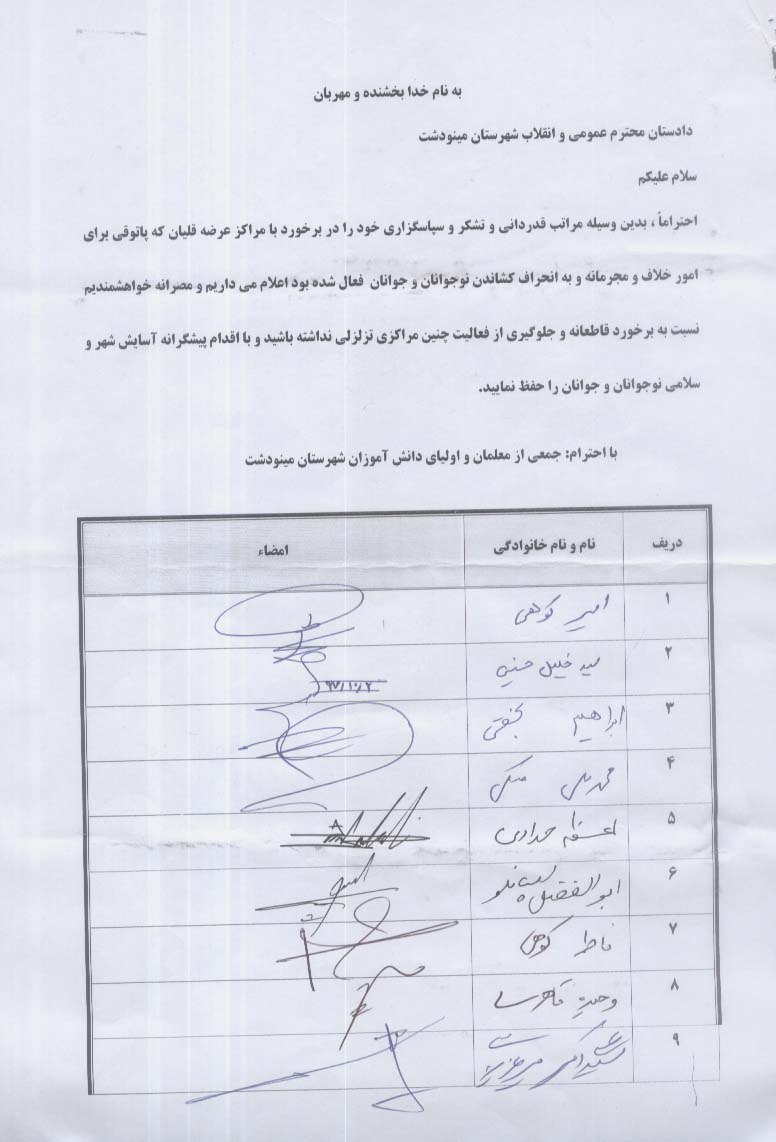 به نام خدا بخشنده و مهربان
دادستان محترم عمومی و انقلاب شهرستان مینودشت
سلام علیکم
احتراماً ، بدین وسیله مراتب قدردانی و تشکر و سپاسگزاری خود را در برخورد با مراکز عرضه قلیان که پاتوقی برای
امور خلاف و مجرمانه و به انحراف کشاندن نوجوانان و جوانان فعال شده بود اعلام می داریم و مصرانه خواهشمندیم
نسبت به برخورد قاطعانه و جلوگیری از فعالیت چنین مراکزی تزلزلی نداشته باشید و با اقدام پیشگرانه آسایش شهر و
سلامی نوجوانان و جوانان را حفظ نمایید.
با احترام: جمعی از معلمان و اولیای دانش آموزان شهرستان مینودشت
دریف نام و نام خانوادگی امضاء
۱ امیر کوهی
۲ سید خلیل حسینی ۹۷/۱۰/۲
۳ ابراهیم
۴ محمد علی
۵ حدادی
۶ ابوالفضل
۷ کوهی
۸ وحید
۹